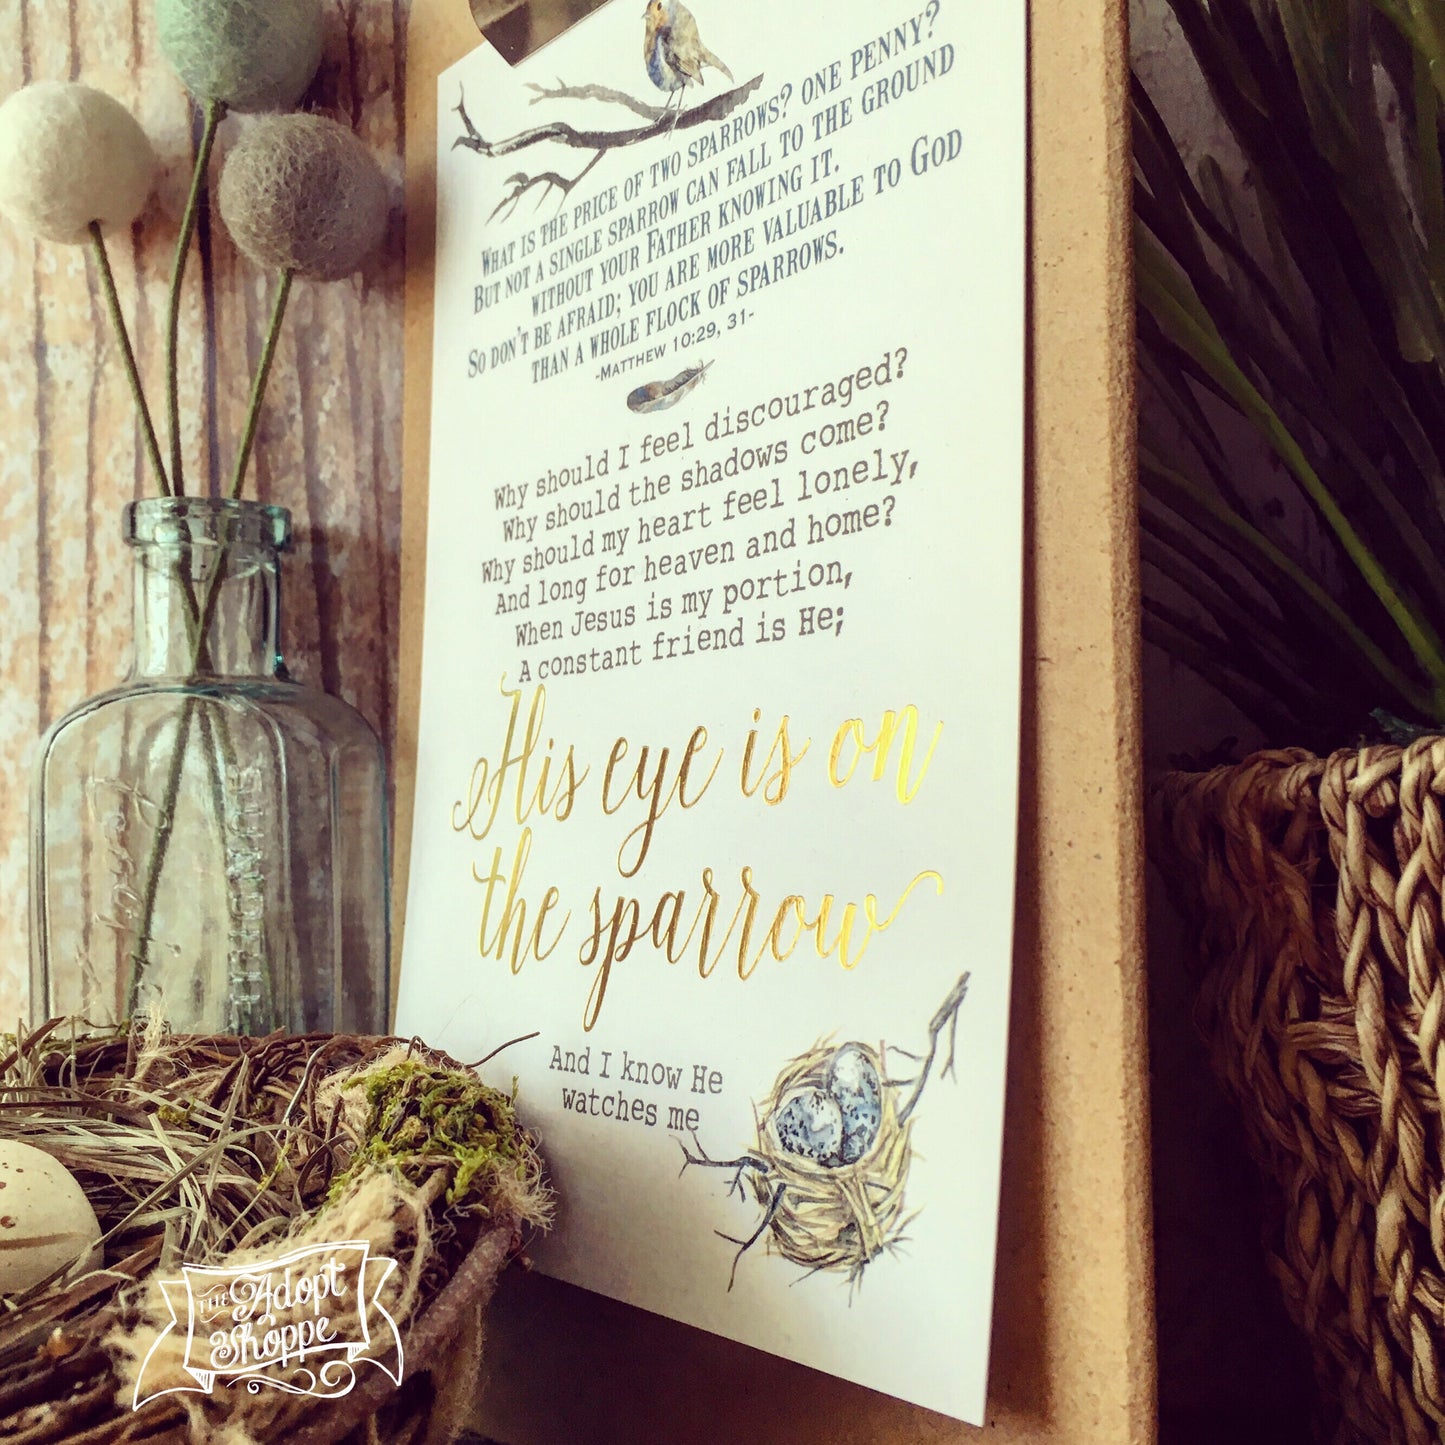 What is the price of two sparrows? One penny?
But not a single sparrow can fall to the ground
without your Father knowing it.
So don't be afraid; you are more valuable to God
than a whole flock of sparrows.
-Matthew 10:29, 31-
Why should I feel discouraged?
Why should the shadows come?
Why should my heart feel lonely,
And long for heaven and home?
When Jesus is my portion,
A constant friend is He;
His eye is on
the sparrow
And I know He
watches me
The Adopt
Shoppe